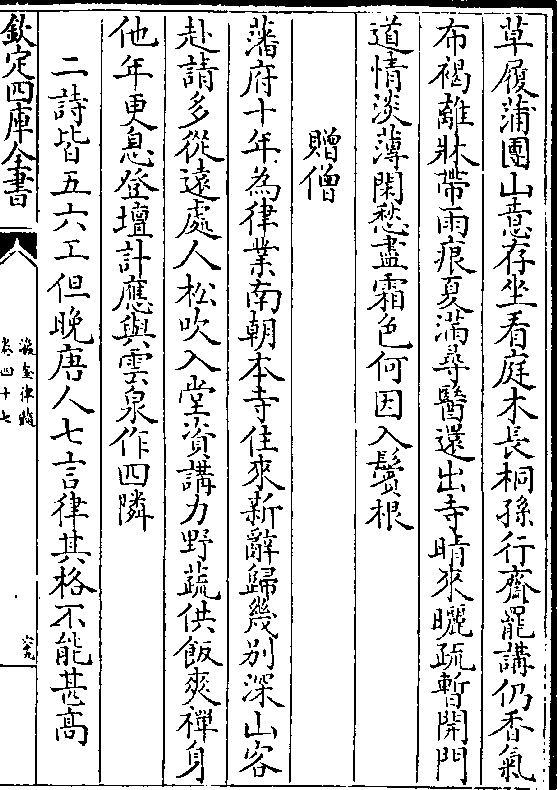 草履蒲團山意存坐看庭木長桐孫行齋罷講仍香氣
布褐離牀帶雨痕夏滿尋醫還出寺晴來曬疏暫開門
道情淡薄閑愁盡霜色何因入鬢根
贈僧
藩府十年為律業南朝本寺住來新辭歸幾别深山客
赴請多從遠處人松吹入堂資講力野蔬供飯爽禪身
他年更息登壇計應與雲泉作四隣
二詩皆五六工但晚唐人七言律其格不能甚髙
欽定四庫全書
瀛奎律髓
卷四十七